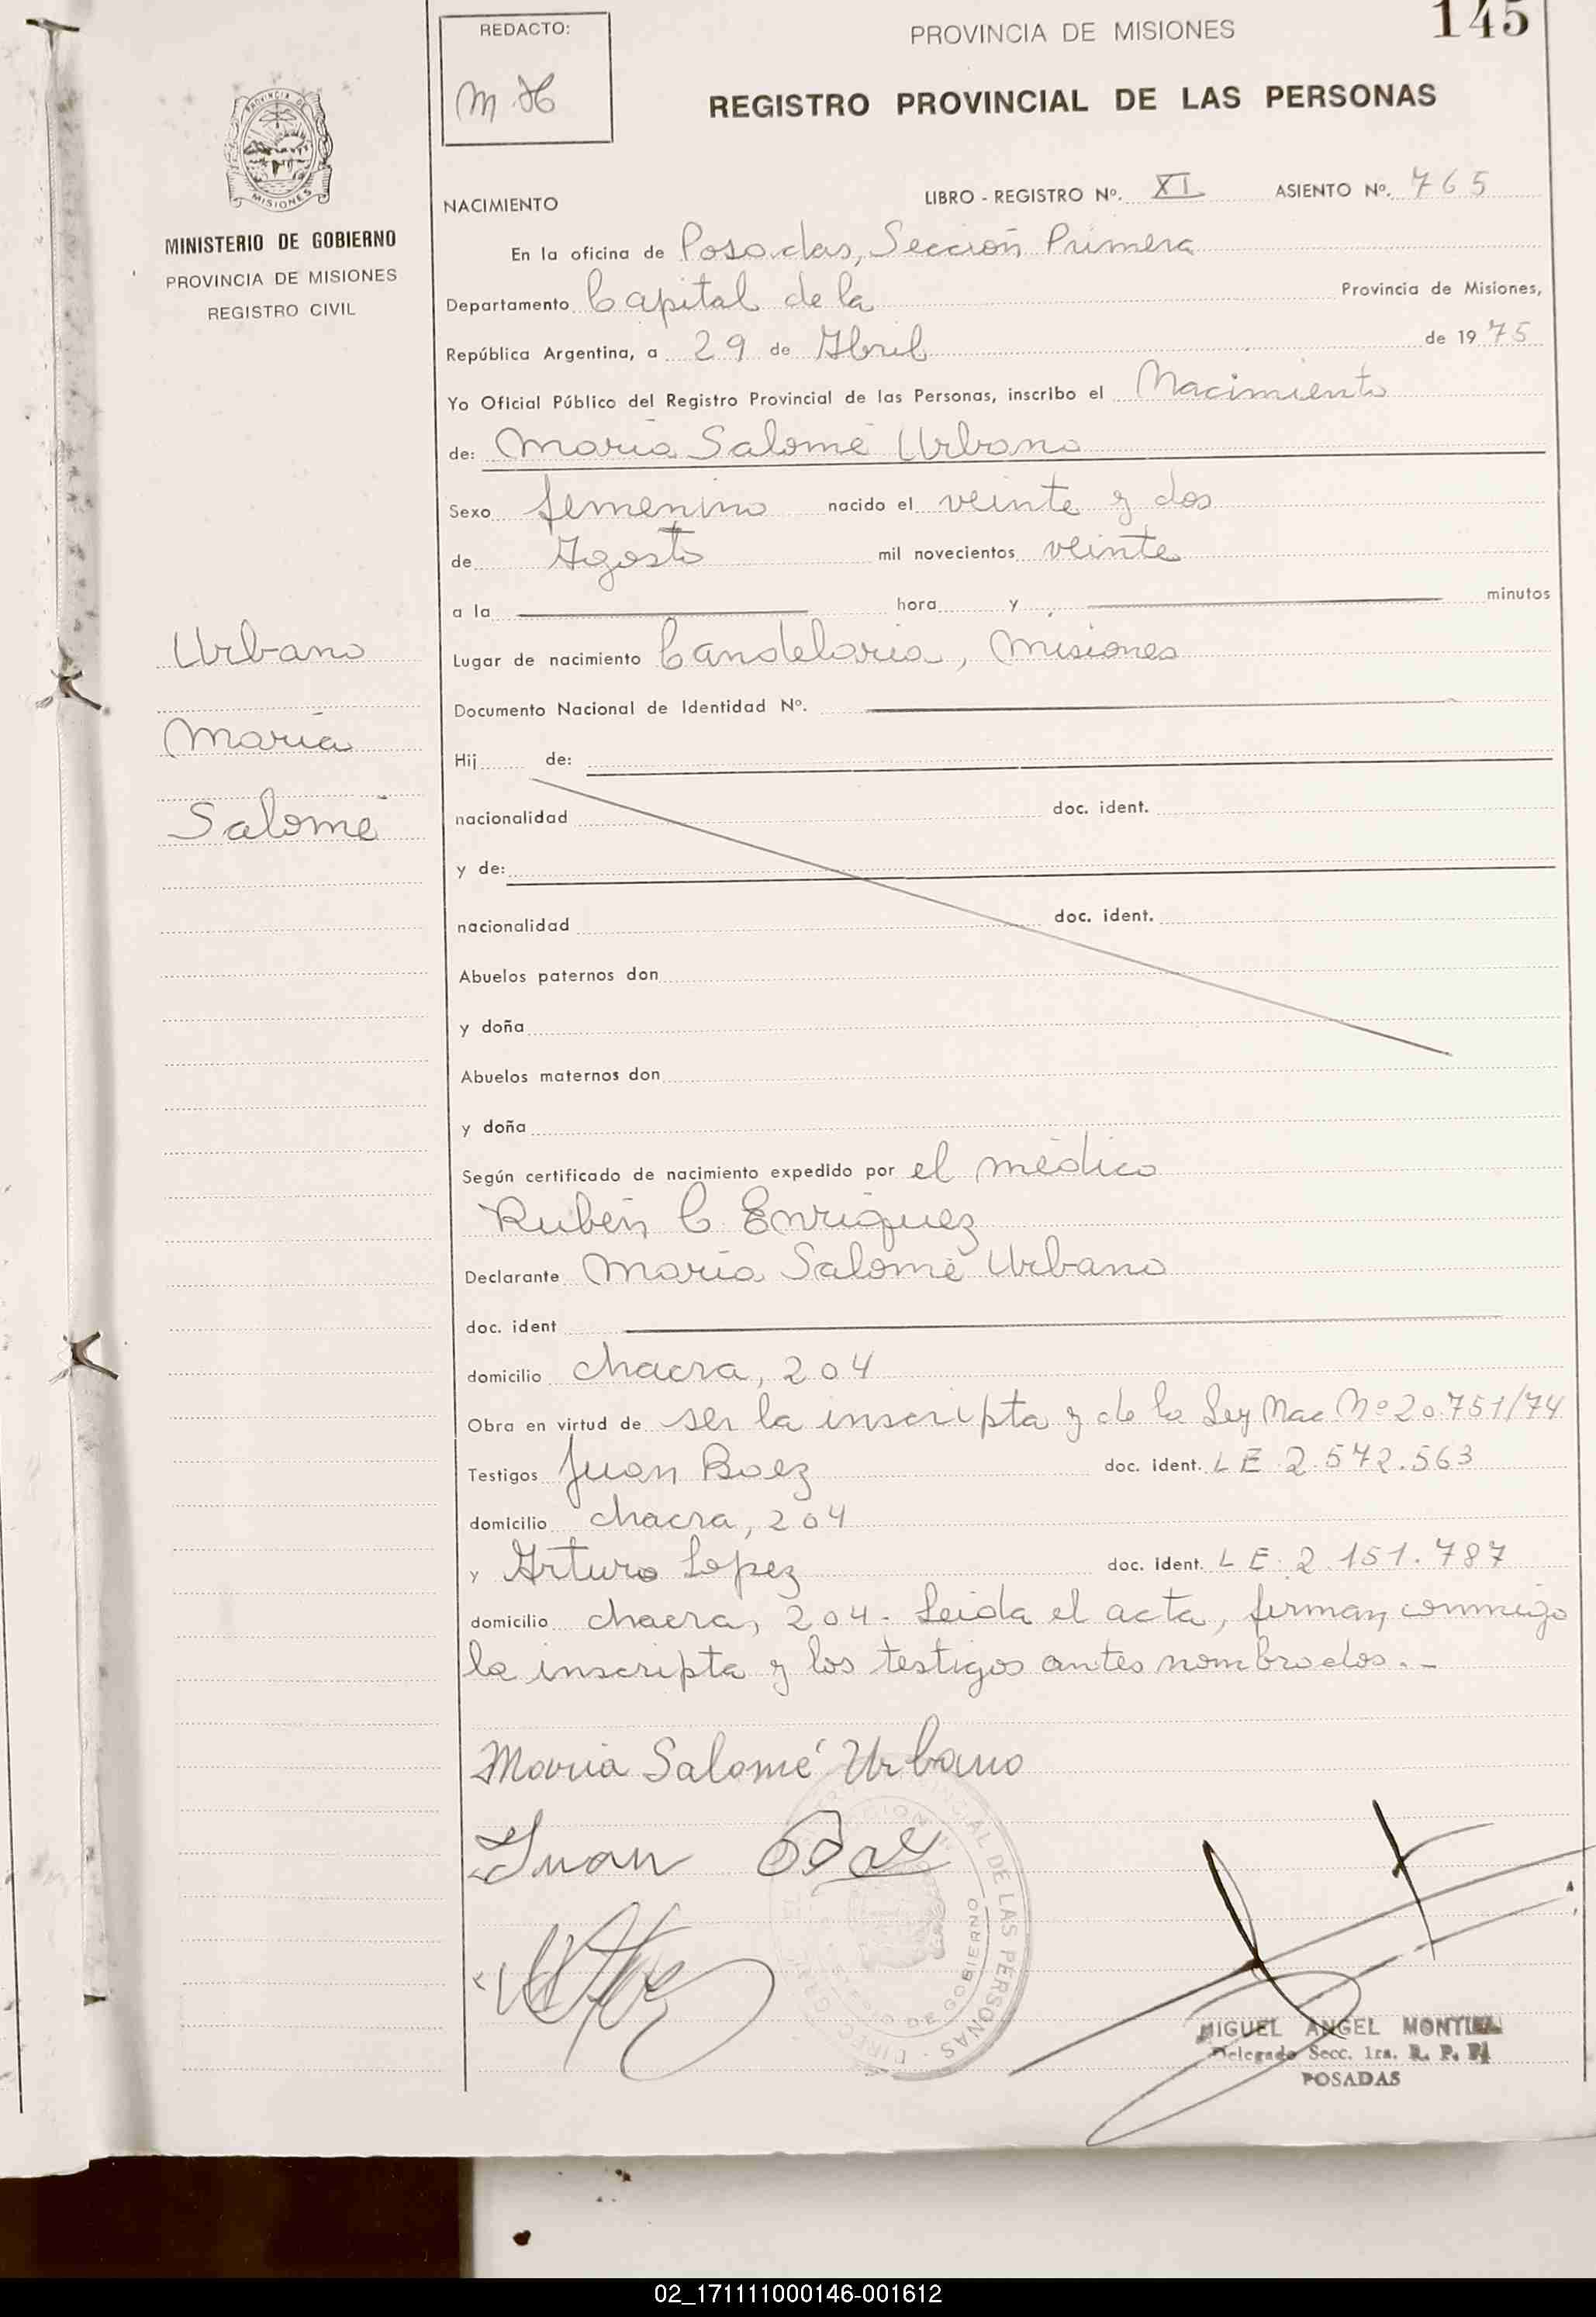 145
REDACTO:
PROVINCIA DE MISIONES
REGISTRO PROVINCIAL DE LAS PERSONAS
PROVINCIA DE
MISIONES
MINISTERIO DE GOBIERNO
PROVINCIA DE MISIONES
REGISTRO CIVIL
NACIMIENTO LIBRO - REGISTRO Nº. XI ASIENTO Nº. 765
En la oficina de Posadas, Sección Primera
Departamento Capital de la Provincia de Misiones,
República Argentina, a 29 de Abril de 1975
Yo Oficial Público del Registro Provincial de las Personas, inscribo el Nacimiento
de: María Salomé Urbano
Sexo femenino nacido el veinte y dos
de Agosto mil novecientos veinte
a la hora y minutos
Urbano
María
Salomé
Lugar de nacimiento Candelaria, Misiones
Documento Nacional de Identidad Nº.
Hij de:
nacionalidad doc. ident.
y de:
nacionalidad doc. ident.
Abuelos paternos don
y doña
Abuelos maternos don
y doña
Según certificado de nacimiento expedido por el médico
Rubén C Enriquez
Declarante María Salomé Urbano
doc. ident
domicilio chacra, 204
Obra en virtud de ser la inscripta y de la Ley Nac Nº 20.751/74
Testigos Juan Baez doc. ident. LE 2.572.563
domicilio chacra, 204
y Arturo Lopez doc. ident. LE 2.151.787
domicilio chacra, 204. Leida el acta, firman conmigo
la inscripta y los testigos antes nombrados.-
María Salomé Urbano
Juan Baez
MIGUEL ANGEL MONTIEL
Delegado Secc. 1ra. R. P. P.
POSADAS
02_171111000146-001612